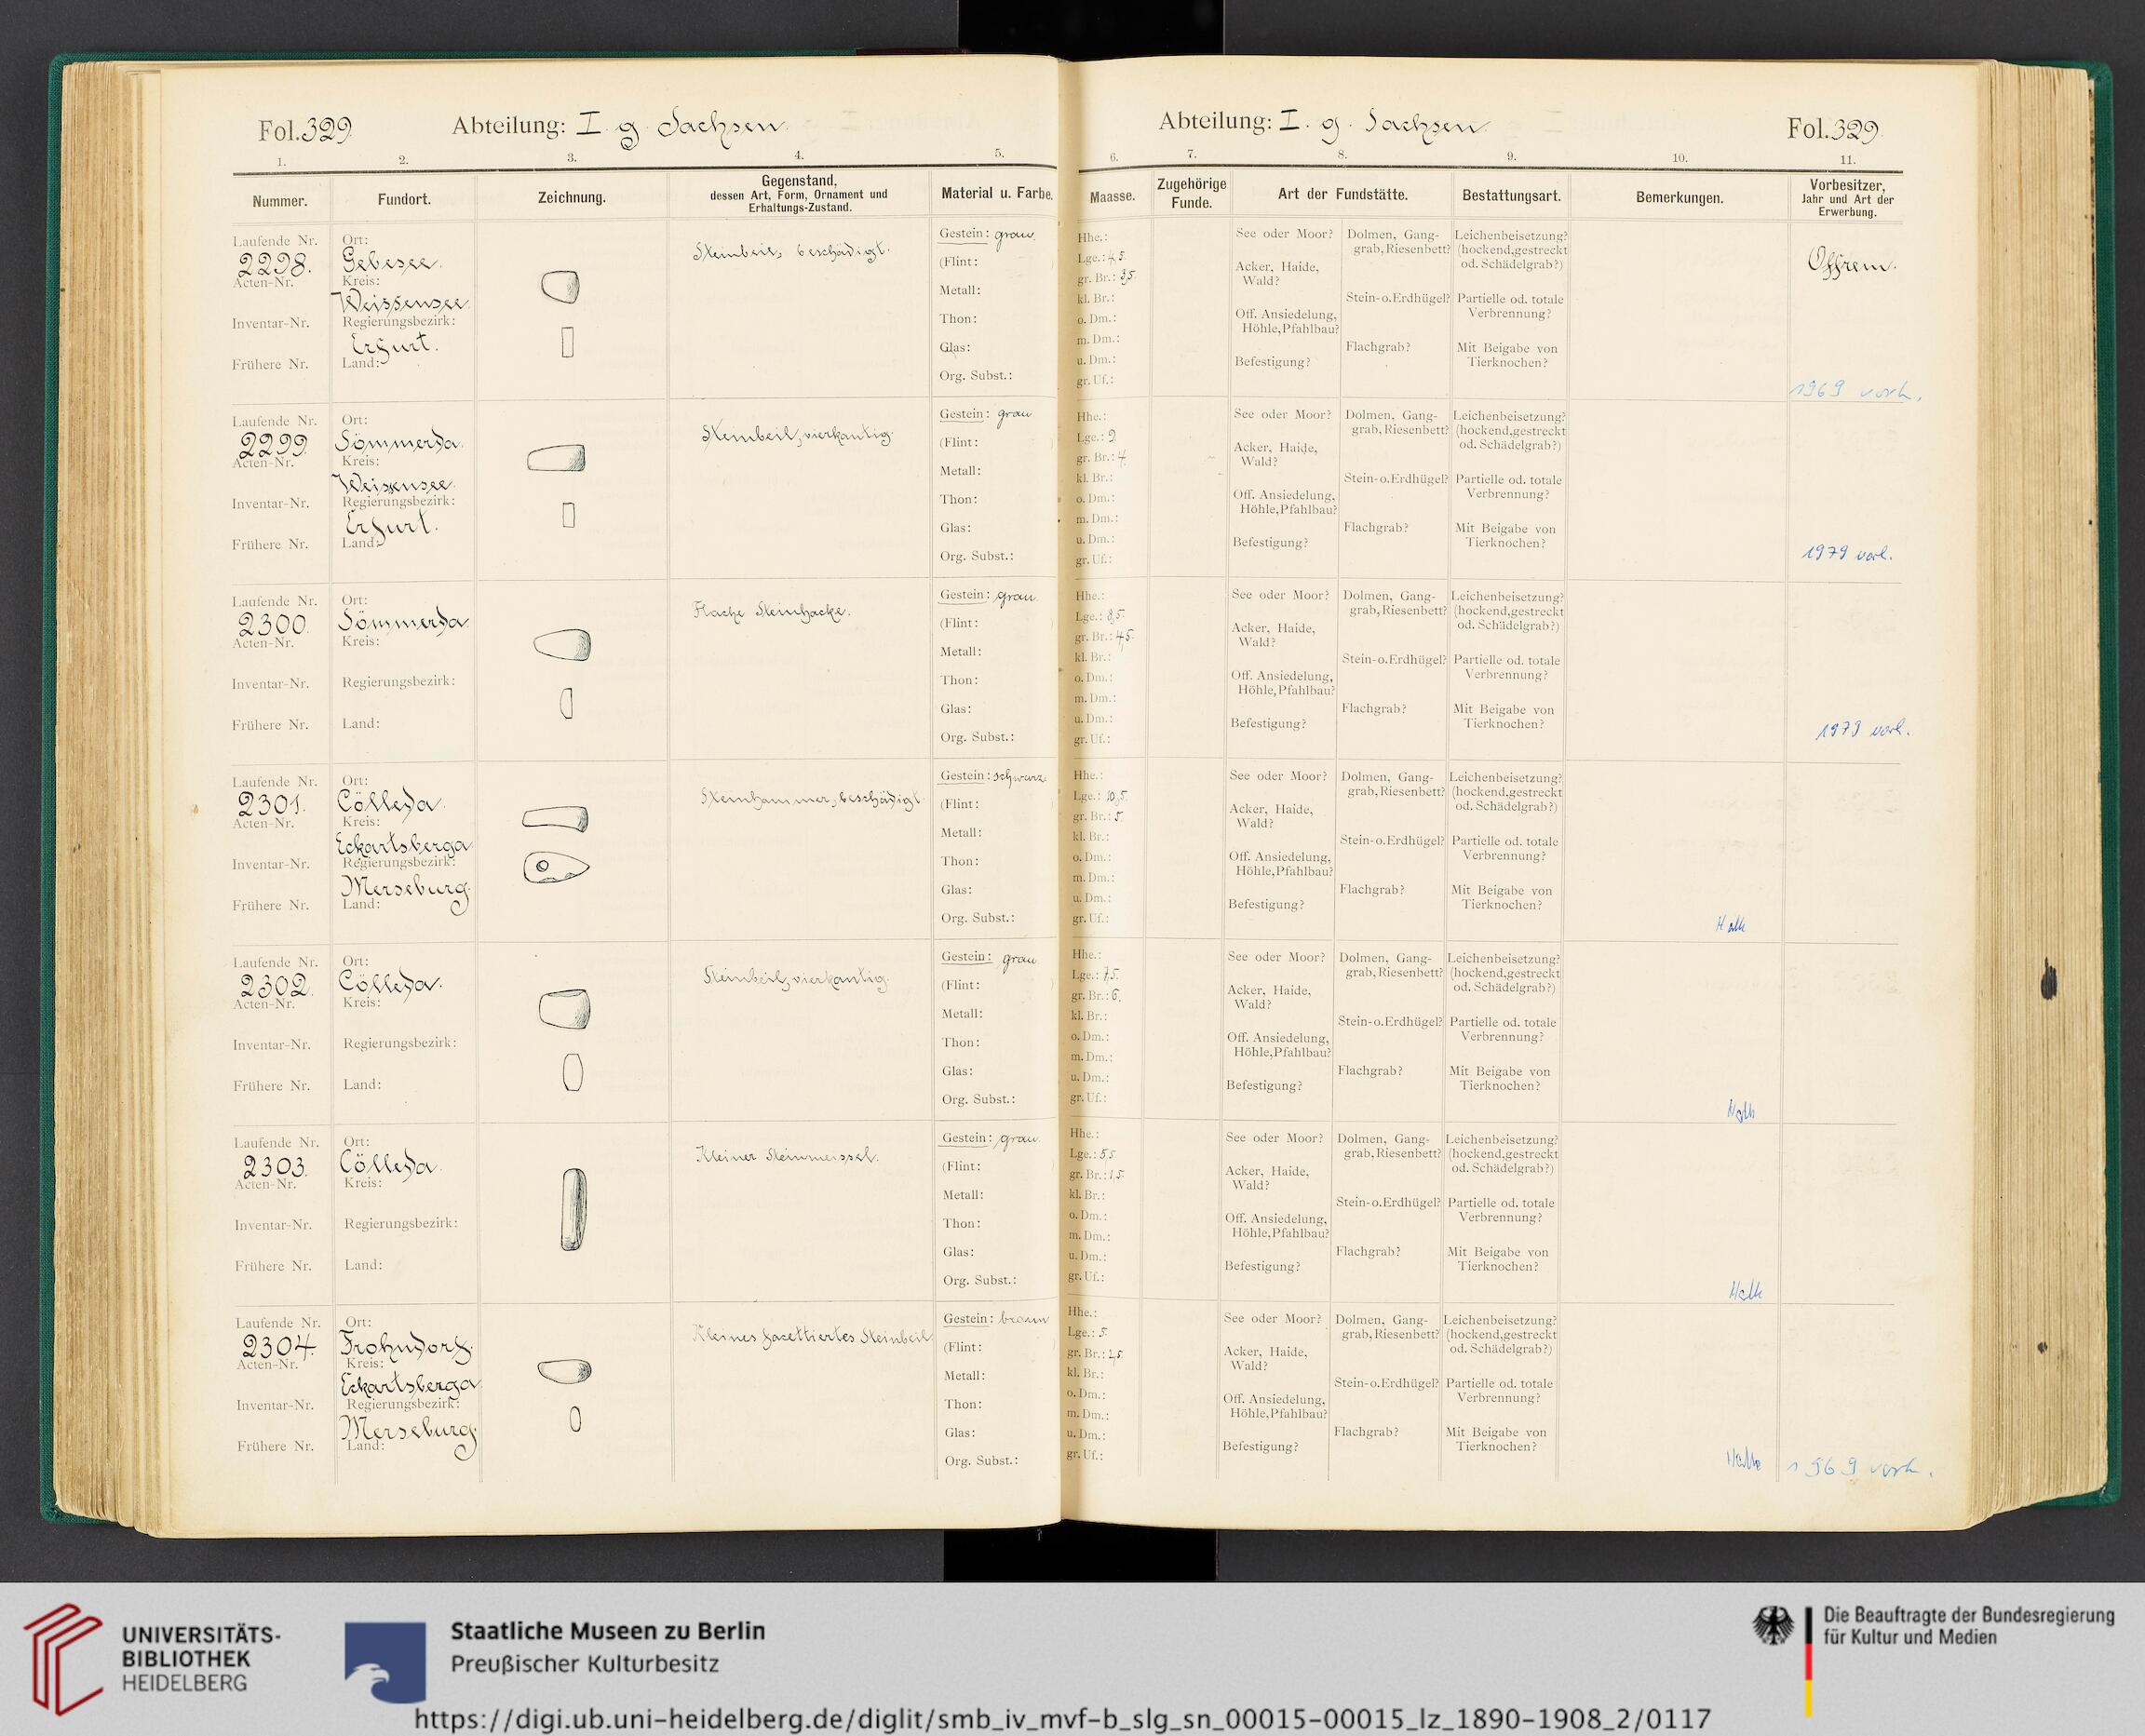 Fol. 329
Abteilung: I. g. Sachsen.
Abteilung: I. g. Sachsen.
Fol. 329
1. 2. 3. 4. 5. 6. 7. 8. 9. 10. 11.
Nummer.
Fundort.
Zeichnung.
Gegenstand,
dessen Art, Form, Ornament und
Erhaltungs-Zustand.
Material u. Farbe.
Maasse.
Zugehörige
Funde.
Art der Fundstätte.
Bestattungsart.
Bemerkungen.
Vorbesitzer,
Jahr und Art der
Erwerbung.
Laufende Nr.
2298.
Acten-Nr.
Inventar-Nr.
Frühere Nr.
Ort:
Gebesee.
Kreis:
Weissensee.
Regierungsbezirk:
Erfurt.
Land:
Steinbeil, beschädigt.
Gestein: grau.
(Flint: )
Metall:
Thon:
Glas:
Org. Subst.:
Hhe.:
Lge.: 4,5
gr. Br.: 3,5.
kl. Br.:
o. Dm.:
m. Dm.:
u. Dm.:
gr. Uf.:
See oder Moor?
Acker, Haide,
Wald?
Off. Ansiedelung,
Höhle, Pfahlbau?
Befestigung?
Dolmen, Gang-
grab, Riesenbett?
Stein- o. Erdhügel?
Flachgrab?
Leichenbeisetzung?
(hockend, gestreckt
od. Schädelgrab?)
Partielle od. totale
Verbrennung?
Mit Beigabe von
Tierknochen?
1969 vorh.
Laufende Nr.
2299.
Acten-Nr.
Inventar-Nr.
Frühere Nr.
Ort:
Sömmerda.
Kreis:
Weissensee.
Regierungsbezirk:
Erfurt.
Land:
Steinbeil, vierkantig.
Gestein: grau
(Flint: )
Metall:
Thon:
Glas:
Org. Subst.:
Hhe.:
Lge.: 9.
gr. Br.: 4.
kl. Br.:
o. Dm.:
m. Dm.:
u. Dm.:
gr. Uf.:
See oder Moor?
Acker, Haide,
Wald?
Off. Ansiedelung,
Höhle, Pfahlbau?
Befestigung?
Dolmen, Gang-
grab, Riesenbett?
Stein- o. Erdhügel?
Flachgrab?
Leichenbeisetzung?
(hockend, gestreckt
od. Schädelgrab?)
Partielle od. totale
Verbrennung?
Mit Beigabe von
Tierknochen?
1979 vorh.
Laufende Nr.
2300.
Acten-Nr.
Inventar-Nr.
Frühere Nr.
Ort:
Sömmerda.
Kreis:
Regierungsbezirk:
Land:
Flache Steinhacke.
Gestein: grau
(Flint: )
Metall:
Thon:
Glas:
Org. Subst.:
Hhe.:
Lge.: 8,5.
gr. Br.: 4,5.
kl. Br.:
o. Dm.:
m. Dm.:
u. Dm.:
gr. Uf.:
See oder Moor?
Acker, Haide,
Wald?
Off. Ansiedelung,
Höhle, Pfahlbau?
Befestigung?
Dolmen, Gang-
grab, Riesenbett?
Stein- o. Erdhügel?
Flachgrab?
Leichenbeisetzung?
(hockend, gestreckt
od. Schädelgrab?)
Partielle od. totale
Verbrennung?
Mit Beigabe von
Tierknochen?
1979 vorh.
Laufende Nr.
2301.
Acten-Nr.
Inventar-Nr.
Frühere Nr.
Ort:
Cölleda.
Kreis:
Eckartsberga
Regierungsbezirk:
Merseburg.
Land:
Steinhammer, beschädigt.
Gestein: schwarz.
(Flint: )
Metall:
Thon:
Glas:
Org. Subst.:
Hhe.:
Lge.: 10,5.
gr. Br.: 5.
kl. Br.:
o. Dm.:
m. Dm.:
u. Dm.:
gr. Uf.:
See oder Moor?
Acker, Haide,
Wald?
Off. Ansiedelung,
Höhle, Pfahlbau?
Befestigung?
Dolmen, Gang-
grab, Riesenbett?
Stein- o. Erdhügel?
Flachgrab?
Leichenbeisetzung?
(hockend, gestreckt
od. Schädelgrab?)
Partielle od. totale
Verbrennung?
Mit Beigabe von
Tierknochen?
Halle
Laufende Nr.
2302.
Acten-Nr.
Inventar-Nr.
Frühere Nr.
Ort:
Cölleda.
Kreis:
Regierungsbezirk:
Land:
Steinbeil, vierkantig.
Gestein: grau
(Flint: )
Metall:
Thon:
Glas:
Org. Subst.:
Hhe.:
Lge.: 7,5.
gr. Br.: 6.
kl. Br.:
o. Dm.:
m. Dm.:
u. Dm.:
gr. Uf.:
See oder Moor?
Acker, Haide,
Wald?
Off. Ansiedelung,
Höhle, Pfahlbau?
Befestigung?
Dolmen, Gang-
grab, Riesenbett?
Stein- o. Erdhügel?
Flachgrab?
Leichenbeisetzung?
(hockend, gestreckt
od. Schädelgrab?)
Partielle od. totale
Verbrennung?
Mit Beigabe von
Tierknochen?
Halle
Laufende Nr.
2303.
Acten-Nr.
Inventar-Nr.
Frühere Nr.
Ort:
Cölleda.
Kreis:
Regierungsbezirk:
Land:
Kleiner Steinmeissel.
Gestein: grau.
(Flint: )
Metall:
Thon:
Glas:
Org. Subst.:
Hhe.:
Lge.: 5,5
gr. Br.: 1,5.
kl. Br.:
o. Dm.:
m. Dm.:
u. Dm.:
gr. Uf.:
See oder Moor?
Acker, Haide,
Wald?
Off. Ansiedelung,
Höhle, Pfahlbau?
Befestigung?
Dolmen, Gang-
grab, Riesenbett?
Stein- o. Erdhügel?
Flachgrab?
Leichenbeisetzung?
(hockend, gestreckt
od. Schädelgrab?)
Partielle od. totale
Verbrennung?
Mit Beigabe von
Tierknochen?
Halle
Laufende Nr.
2304.
Acten-Nr.
Inventar-Nr.
Frühere Nr.
Ort:
Frohndorf.
Kreis:
Eckartsberga
Regierungsbezirk:
Merseburg.
Land:
Kleines facettiertes Steinbeil
Gestein: braun
(Flint: )
Metall:
Thon:
Glas:
Org. Subst.:
Hhe.:
Lge.: 5.
gr. Br.: 2,5.
kl. Br.:
o. Dm.:
m. Dm.:
u. Dm.:
gr. Uf.:
See oder Moor?
Acker, Haide,
Wald?
Off. Ansiedelung,
Höhle, Pfahlbau?
Befestigung?
Dolmen, Gang-
grab, Riesenbett?
Stein- o. Erdhügel?
Flachgrab?
Leichenbeisetzung?
(hockend, gestreckt
od. Schädelgrab?)
Partielle od. totale
Verbrennung?
Mit Beigabe von
Tierknochen?
Halle
1969 vorh.
UNIVERSITÄTS-
BIBLIOTHEK
HEIDELBERG
Staatliche Museen zu Berlin
Preußischer Kulturbesitz
Die Beauftragte der Bundesregierung
für Kultur und Medien
https://digi.ub.uni-heidelberg.de/diglit/smb_iv_mvf-b_slg_sn_00015-00015_lz_1890-1908_2/0117